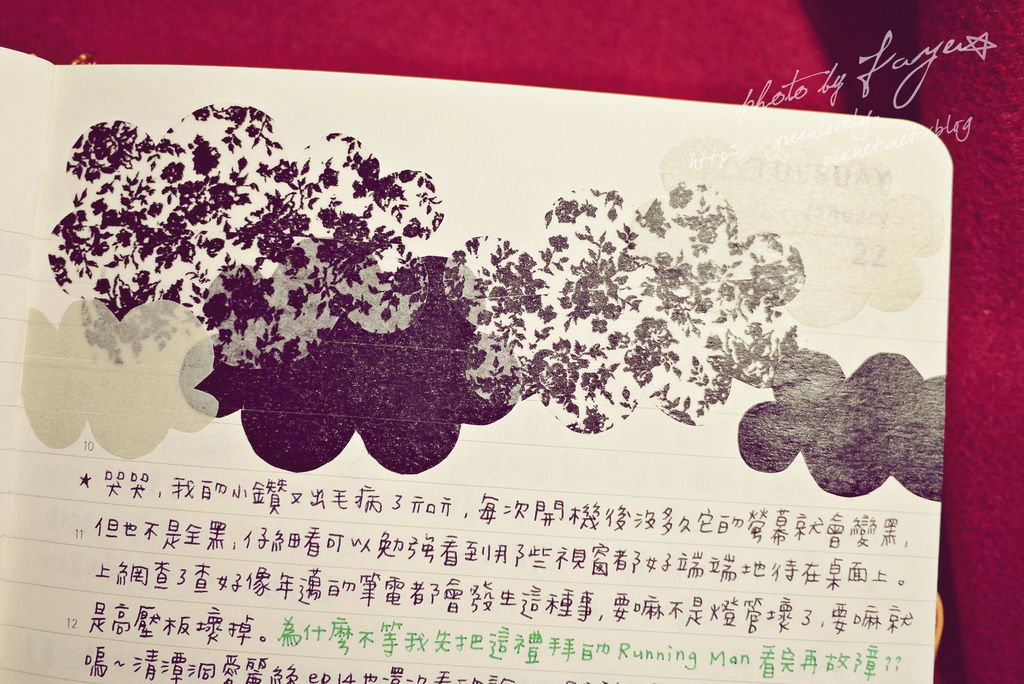 photo by Faye☆
http://greenlovely.
pixnet.net/blog
TUESDAY
January
22
10
★ 哭哭，我的小鑽又出毛病了示示，每次開機後沒多久它的螢幕就會變黑，
11
但也不是全黑，仔細看可以勉強看到那些視窗都好端端地待在桌面上。
上網查了查好像年邁的筆電都會發生這種事，要嘛不是燈管壞了，要嘛就
12
是高壓板壞掉。為什麼不等我先把這禮拜的Running Man看完再故障??
嗚~清潭洞愛麗絲ep14也還沒看